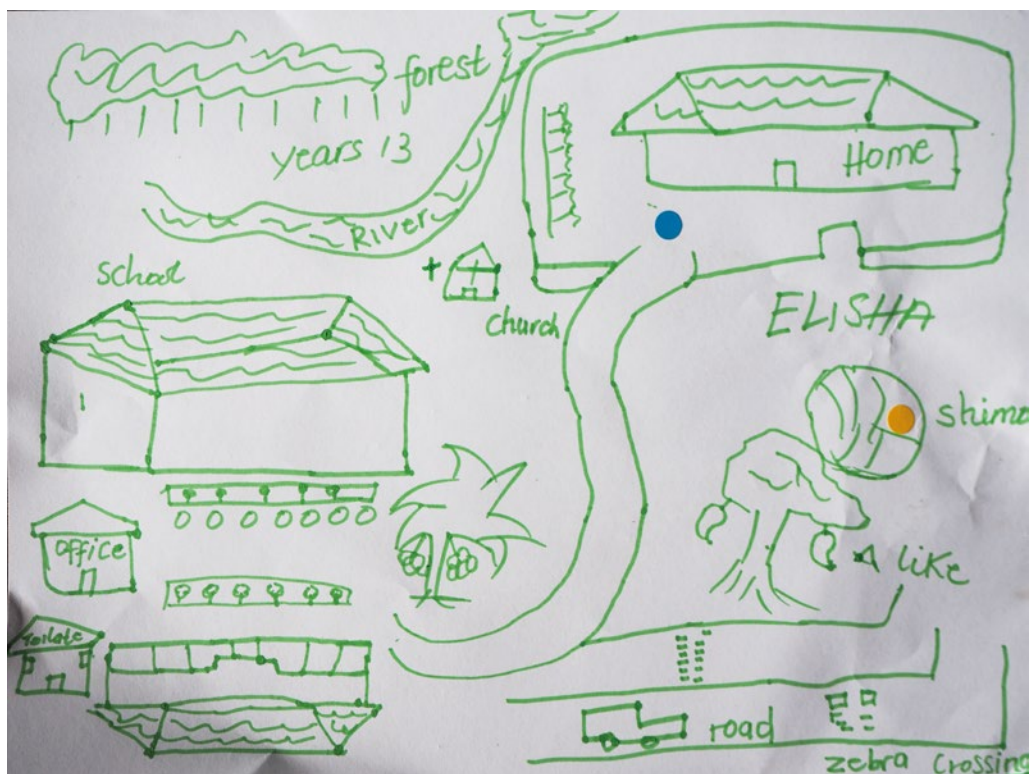 forest
years 13
River
Home
school
church
ELISHA
office
like
Toilate
road
zebra crossing